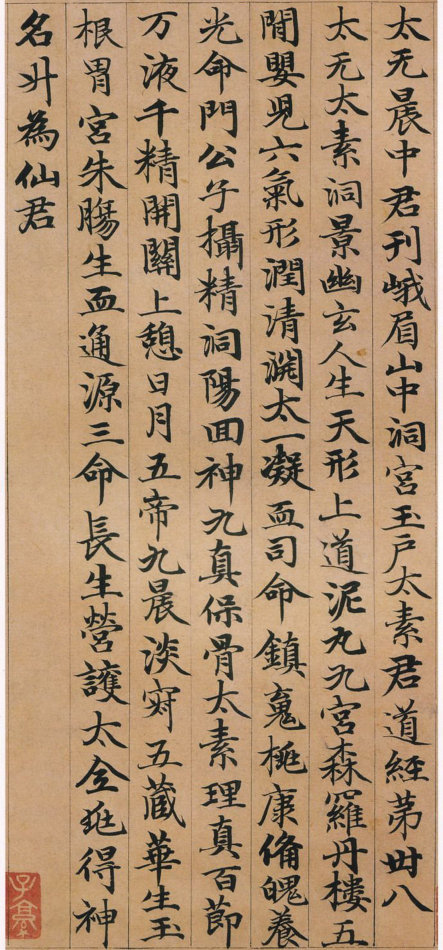 太无晨中君刊峨眉山中洞宫玉户太素君道經苐卌八
太无太素洞景幽玄人生天形上道泥丸九宫森羅丹樓五
閒嬰兒六氣形潤清淵太一凝血司命鎮䰟桃康俻魄養
光命門公子攝精洞陽囬神九真保骨太素理真百節
万液千精開闗上憩日月五帝九晨淡五藏華生玉
根胃宫朱腸生血通源三命長生營護太得神
名升為仙君
子京